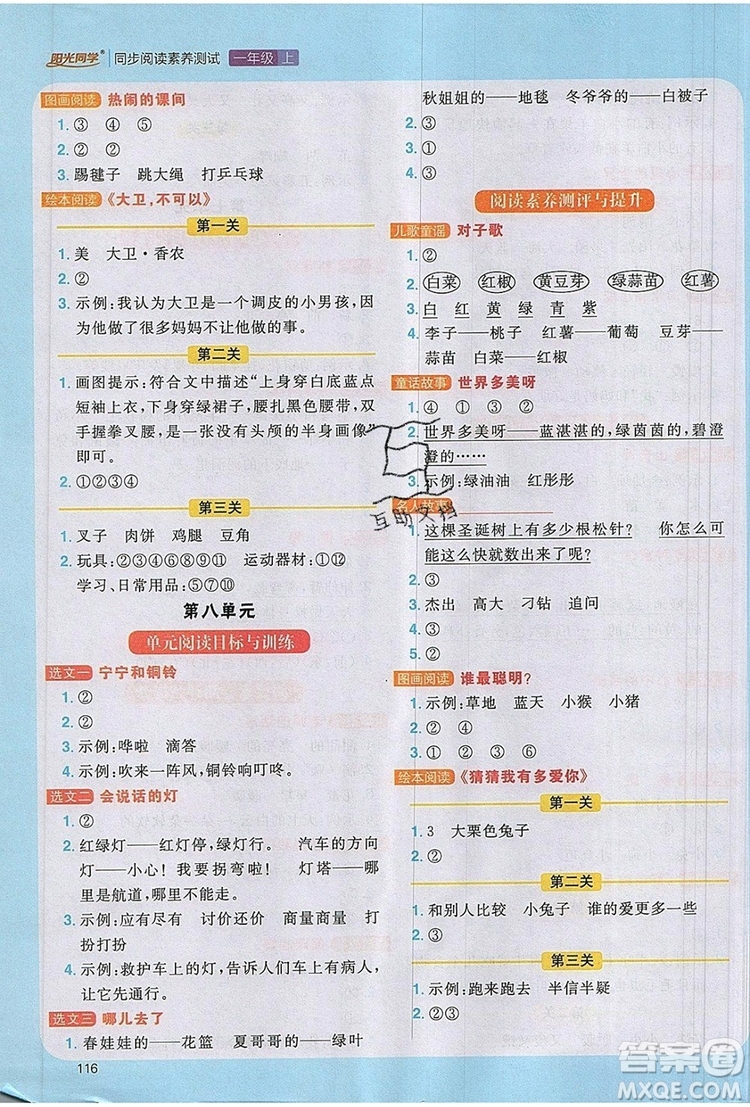 阳光同学® 同步阅读素养测试 一年级 上
图画阅读 热闹的课间
1. ③ ④ ⑤
2. ②
3. 踢毽子 跳大绳 打乒乓球
绘本阅读 《大卫,不可以》
第一关
1. 美 大卫·香农
2. ②
3. 示例:我认为大卫是一个调皮的小男孩,因
为他做了很多妈妈不让他做的事。
第二关
1. 画图提示:符合文中描述“上身穿白底蓝点
短袖上衣,下身穿绿裙子,腰扎黑色腰带,双
手握拳叉腰,是一张没有头颅的半身画像”
即可。
2. ①③④
第三关
1. 叉子 肉饼 鸡腿 豆角
2. 玩具:②③④⑥⑧⑨⑪ 运动器材:①⑫
学习、日常用品:⑤⑦⑩
第八单元
单元阅读目标与训练
选文一 宁宁和铜铃
1. ②
2. ②
3. 示例:哗啦 滴答
4. 示例:吹来一阵风,铜铃响叮咚。
选文二 会说话的灯
1. ②
2. 红绿灯——红灯停,绿灯行。 汽车的方向
灯——小心!我要拐弯啦! 灯塔——哪
里是航道,哪里不能走。
3. 示例:应有尽有 讨价还价 商量商量 打
扮打扮
4. 示例:救护车上的灯,告诉人们车上有病人,
让它先通行。
选文三 哪儿去了
1. 春娃娃的——花篮 夏哥哥的——绿叶
116
秋姐姐的——地毯 冬爷爷的——白被子
2. ③
3. ①
4. ③
阅读素养测评与提升
儿歌童谣 对子歌
1. ②
2. 白菜 红椒 黄豆芽 绿蒜苗 红薯
3. 白 红 黄 绿 青 紫
4. 李子——桃子 红薯——葡萄 豆芽——
蒜苗 白菜——红椒
童话故事 世界多美呀
1. ④ ① ②
2. 世界多美呀——蓝湛湛的,绿茵茵的,碧澄
澄的……
3. 示例:绿油油 红彤彤
名人故事
1. 这棵圣诞树上有多少根松针? 你怎么可
能这么快就数出来了呢?
2. ③
3. 杰出 高大 刁钻 追问
4. ①
5. ②
图画阅读 谁最聪明?
1. 示例:草地 蓝天 小猴 小猪
2. ②④
3. ① ③ ② ④
绘本阅读 《猜猜我有多爱你》
第一关
1. 3 大栗色兔子
2. ②
第二关
1. 和别人比较 小兔子 谁的爱更多
2. ③
第三关
1. 示例:跑来跑去 半信半疑
2. ①②③
互助文档
答案圈
MXQE.COM